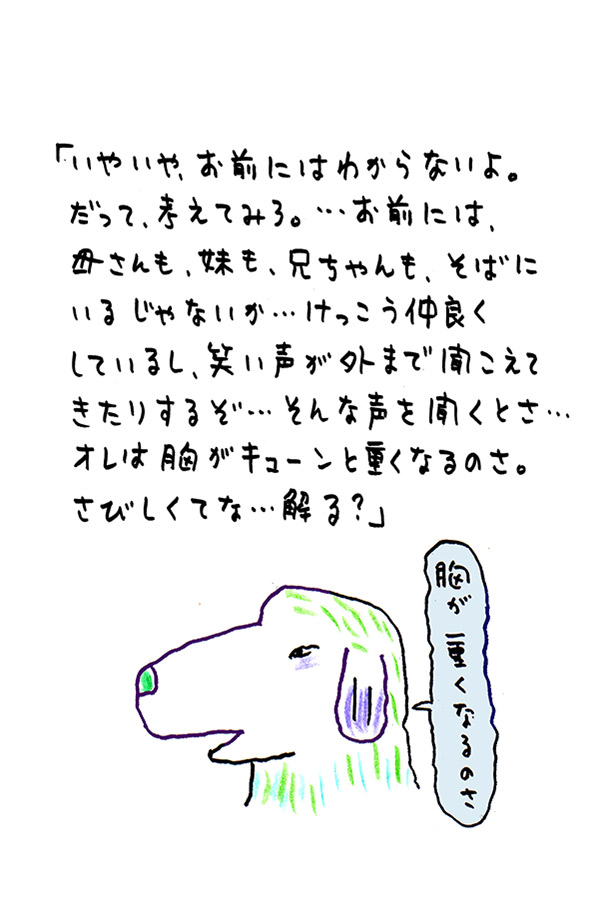 「いやいや、お前にはわからないよ。
だって、考えてみろ。…お前には、
母さんも、妹も、兄ちゃんも、そばに
いるじゃないか…けっこう仲良く
しているし、笑い声が外まで聞こえて
きたりするぞ…そんな声を聞くとさ…
オレは胸がキューンと重くなるのさ。
さびしくてな…解る？」
胸が重くなるのさ